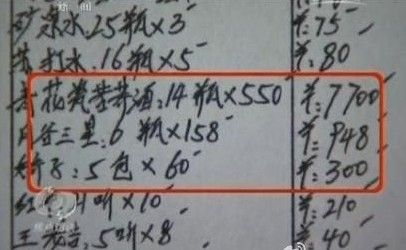 矿泉水.25瓶×3 ¥:75
苏打水.16瓶×5 ¥:80
花黄苦荞酒:14瓶×550 ¥:7700
三星:6瓶×158 ¥:948
5包×60 ¥:300
红 21听×10 ¥:210
王老吉:5听×8 ¥:40